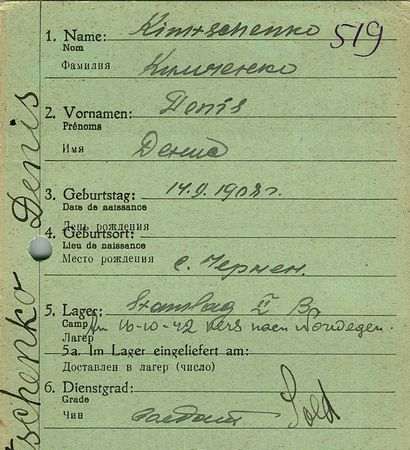 1. Name: Klimtschenko 519
Nom
Фамилия Климченко
2. Vornamen: Denis
Prénoms
Имя Денис
3. Geburtstag: 14.9.1902г.
Date de naissance
День рождения
4. Geburtsort:
Lieu de naissance
Место рождения с. Чернен.
5. Lager: Stamlag II B,
Camp Am 16-10-42 vers nach Norwegen.
Лагер
5a. Im Lager eingeliefert am:
Доставлен в лагер (число)
6. Dienstgrad:
Grade
Чин солдат Sold
tschenko Denis